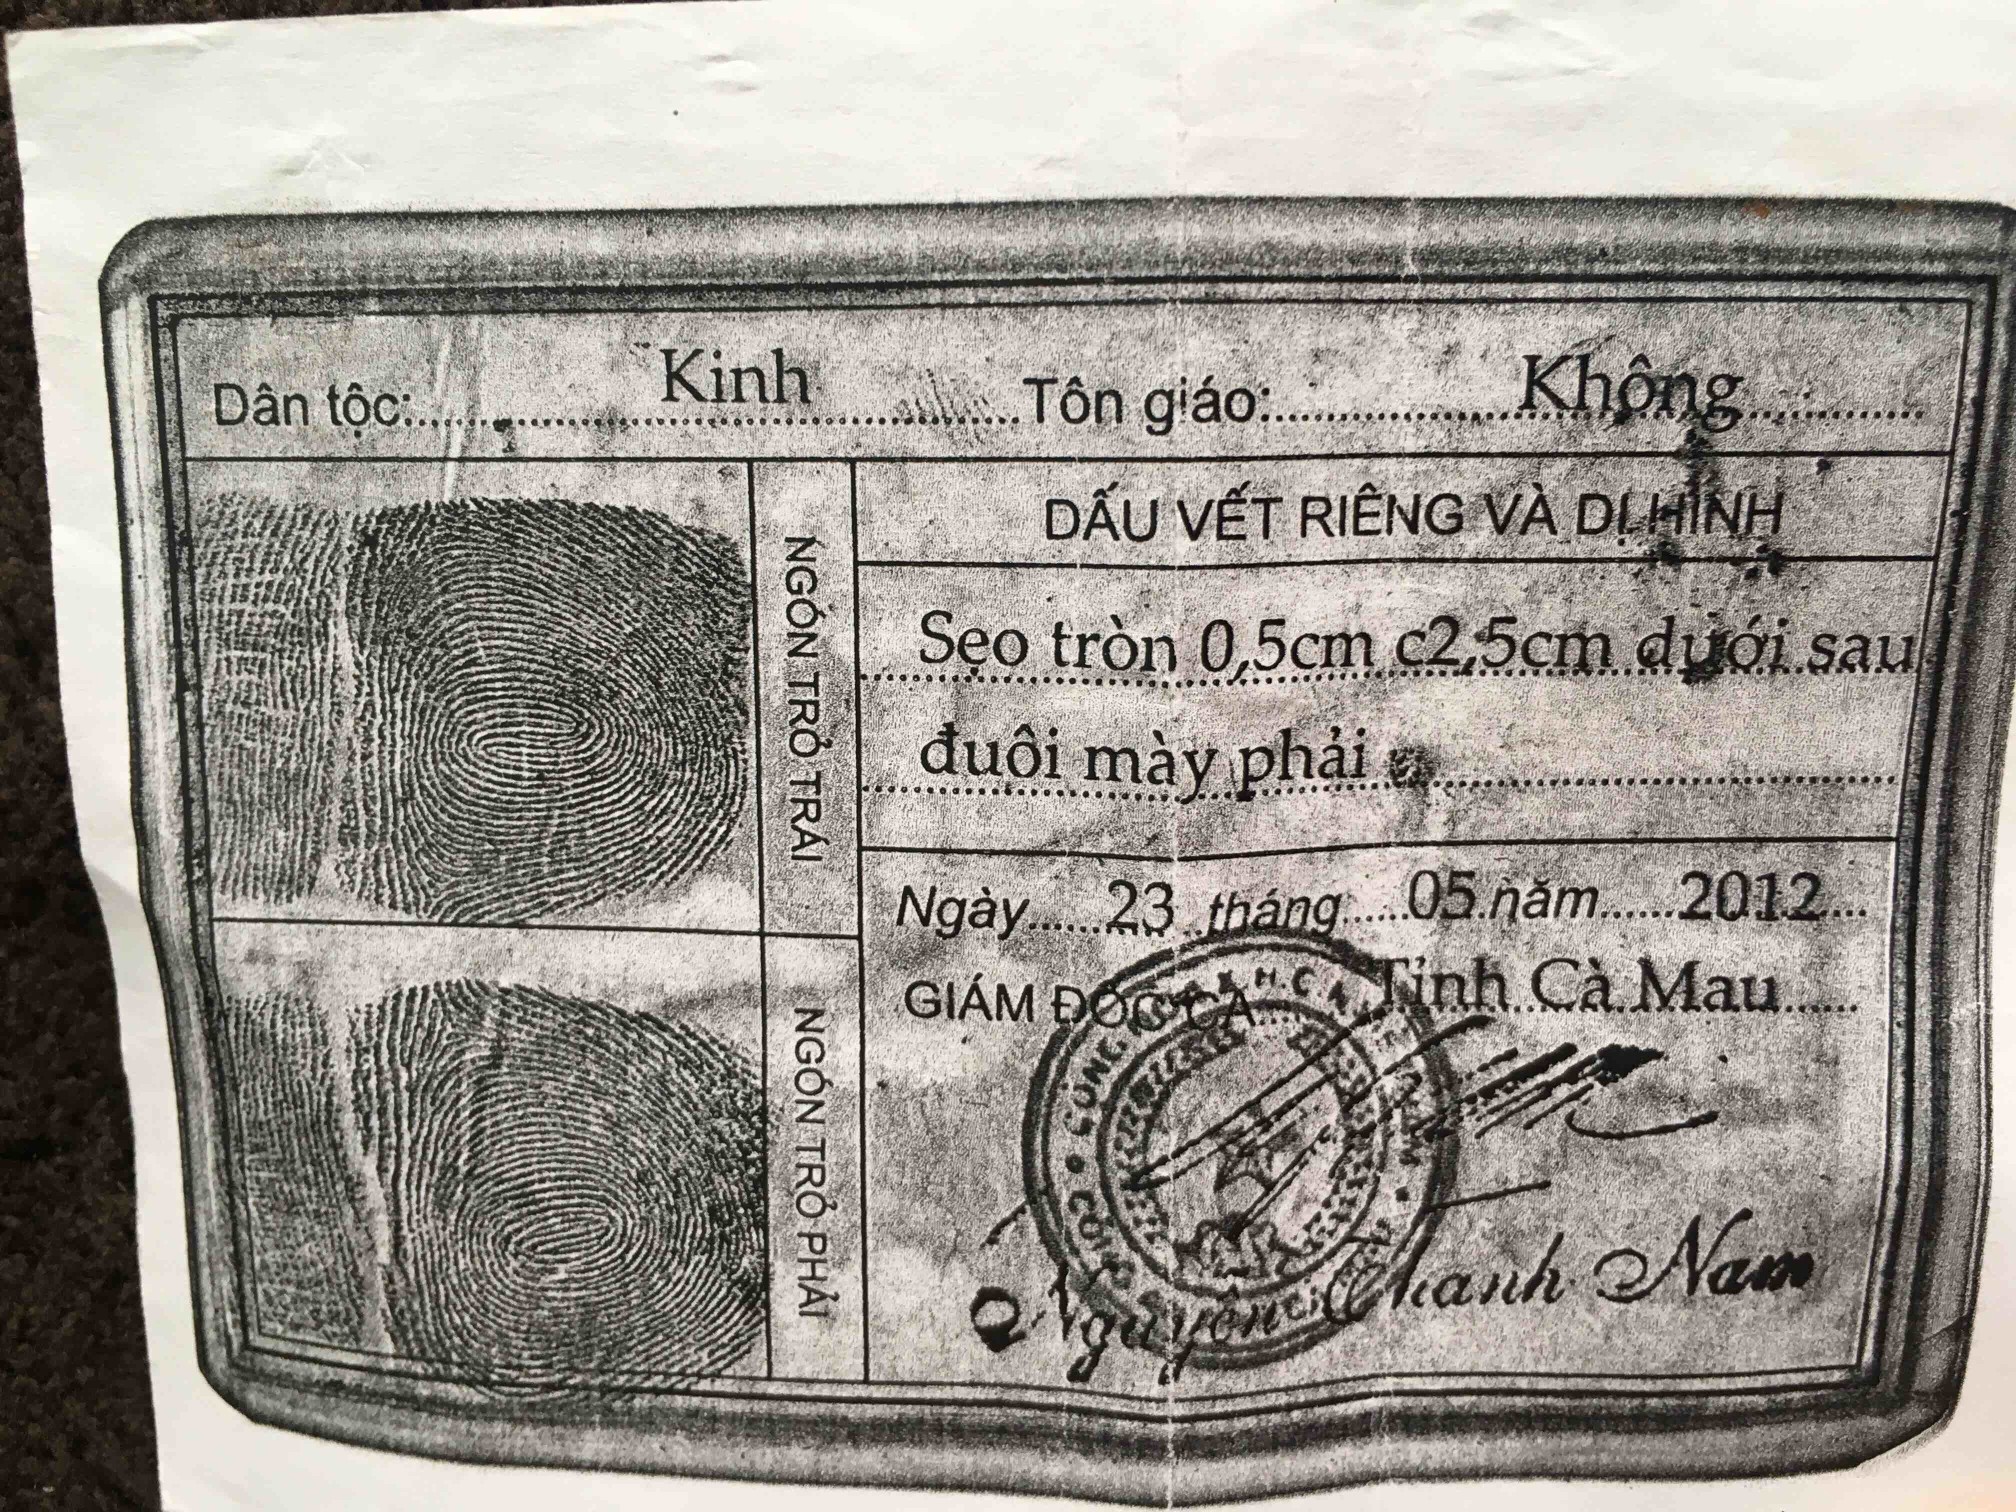 Dân tộc: Kinh Tôn giáo: Không
NGÓN TRỎ TRÁI
DẤU VẾT RIÊNG VÀ DỊ HÌNH
Sẹo tròn 0,5cm c2,5cm dưới sau
đuôi mày phải
Ngày 23 tháng 05 năm 2012
GIÁM ĐỐC CA Tỉnh Cà Mau
NGÓN TRỎ PHẢI
Nguyễn Thanh Nam